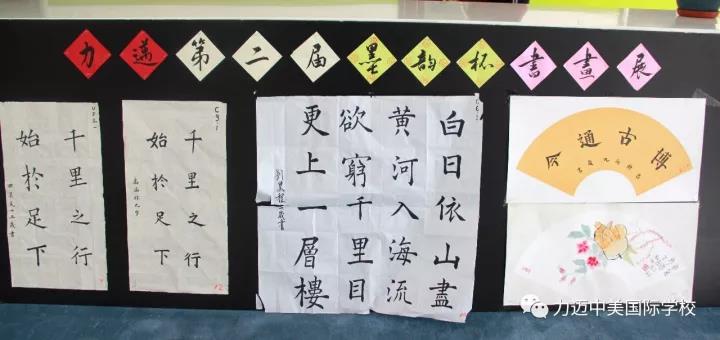 力邁第二届墨韵杯書畫展
千里之行
始於足下
千里之行
始於足下
白日依山盡
黄河入海流
欲窮千里目
更上一層樓
博古通今
力迈中美国际学校